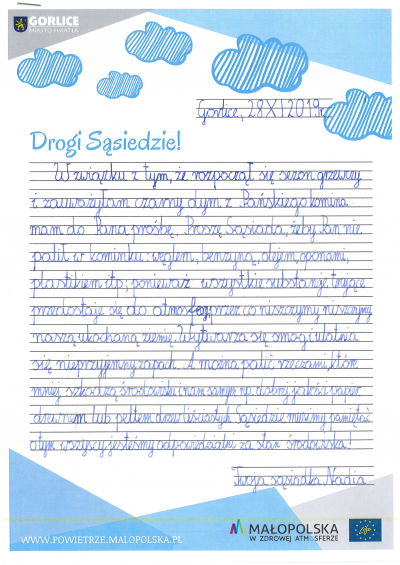 GORLICE
MIASTO ŚWIATŁA
Gorlice, 28XI2019r.
Drogi Sąsiedzie!
W związku z tym, że rozpoczął się sezon grzewczy
i zauważyłam czarny dym z Pańskiego komina
mam do Pana prośbę. Proszę Sąsiada, żeby Pan nie
palił w kominku: węglem, benzyną, olejem, oponami,
plastikiem itp; ponieważ wszystkie substancje trujące
przedostaje się do atmosfery przez co niszczymy
naszą ukochaną ziemię. Wytwarza się smog i ulatnia
się nieprzyjemny zapach. A można palić rzeczami, które
mniej szkodzą środowisku i nam samym np. dobrej jakości papier
drewnem lub peltem drzew liściastych. Sąsiedzie musimy pamiętać
o tym wszyscy jesteśmy odpowiedzialni za stan środowiska!
Twoja sąsiadka Nadia
WWW.POWIETRZE.MALOPOLSKA.PL
MAŁOPOLSKA
W ZDROWEJ ATMOSFERZE
Life